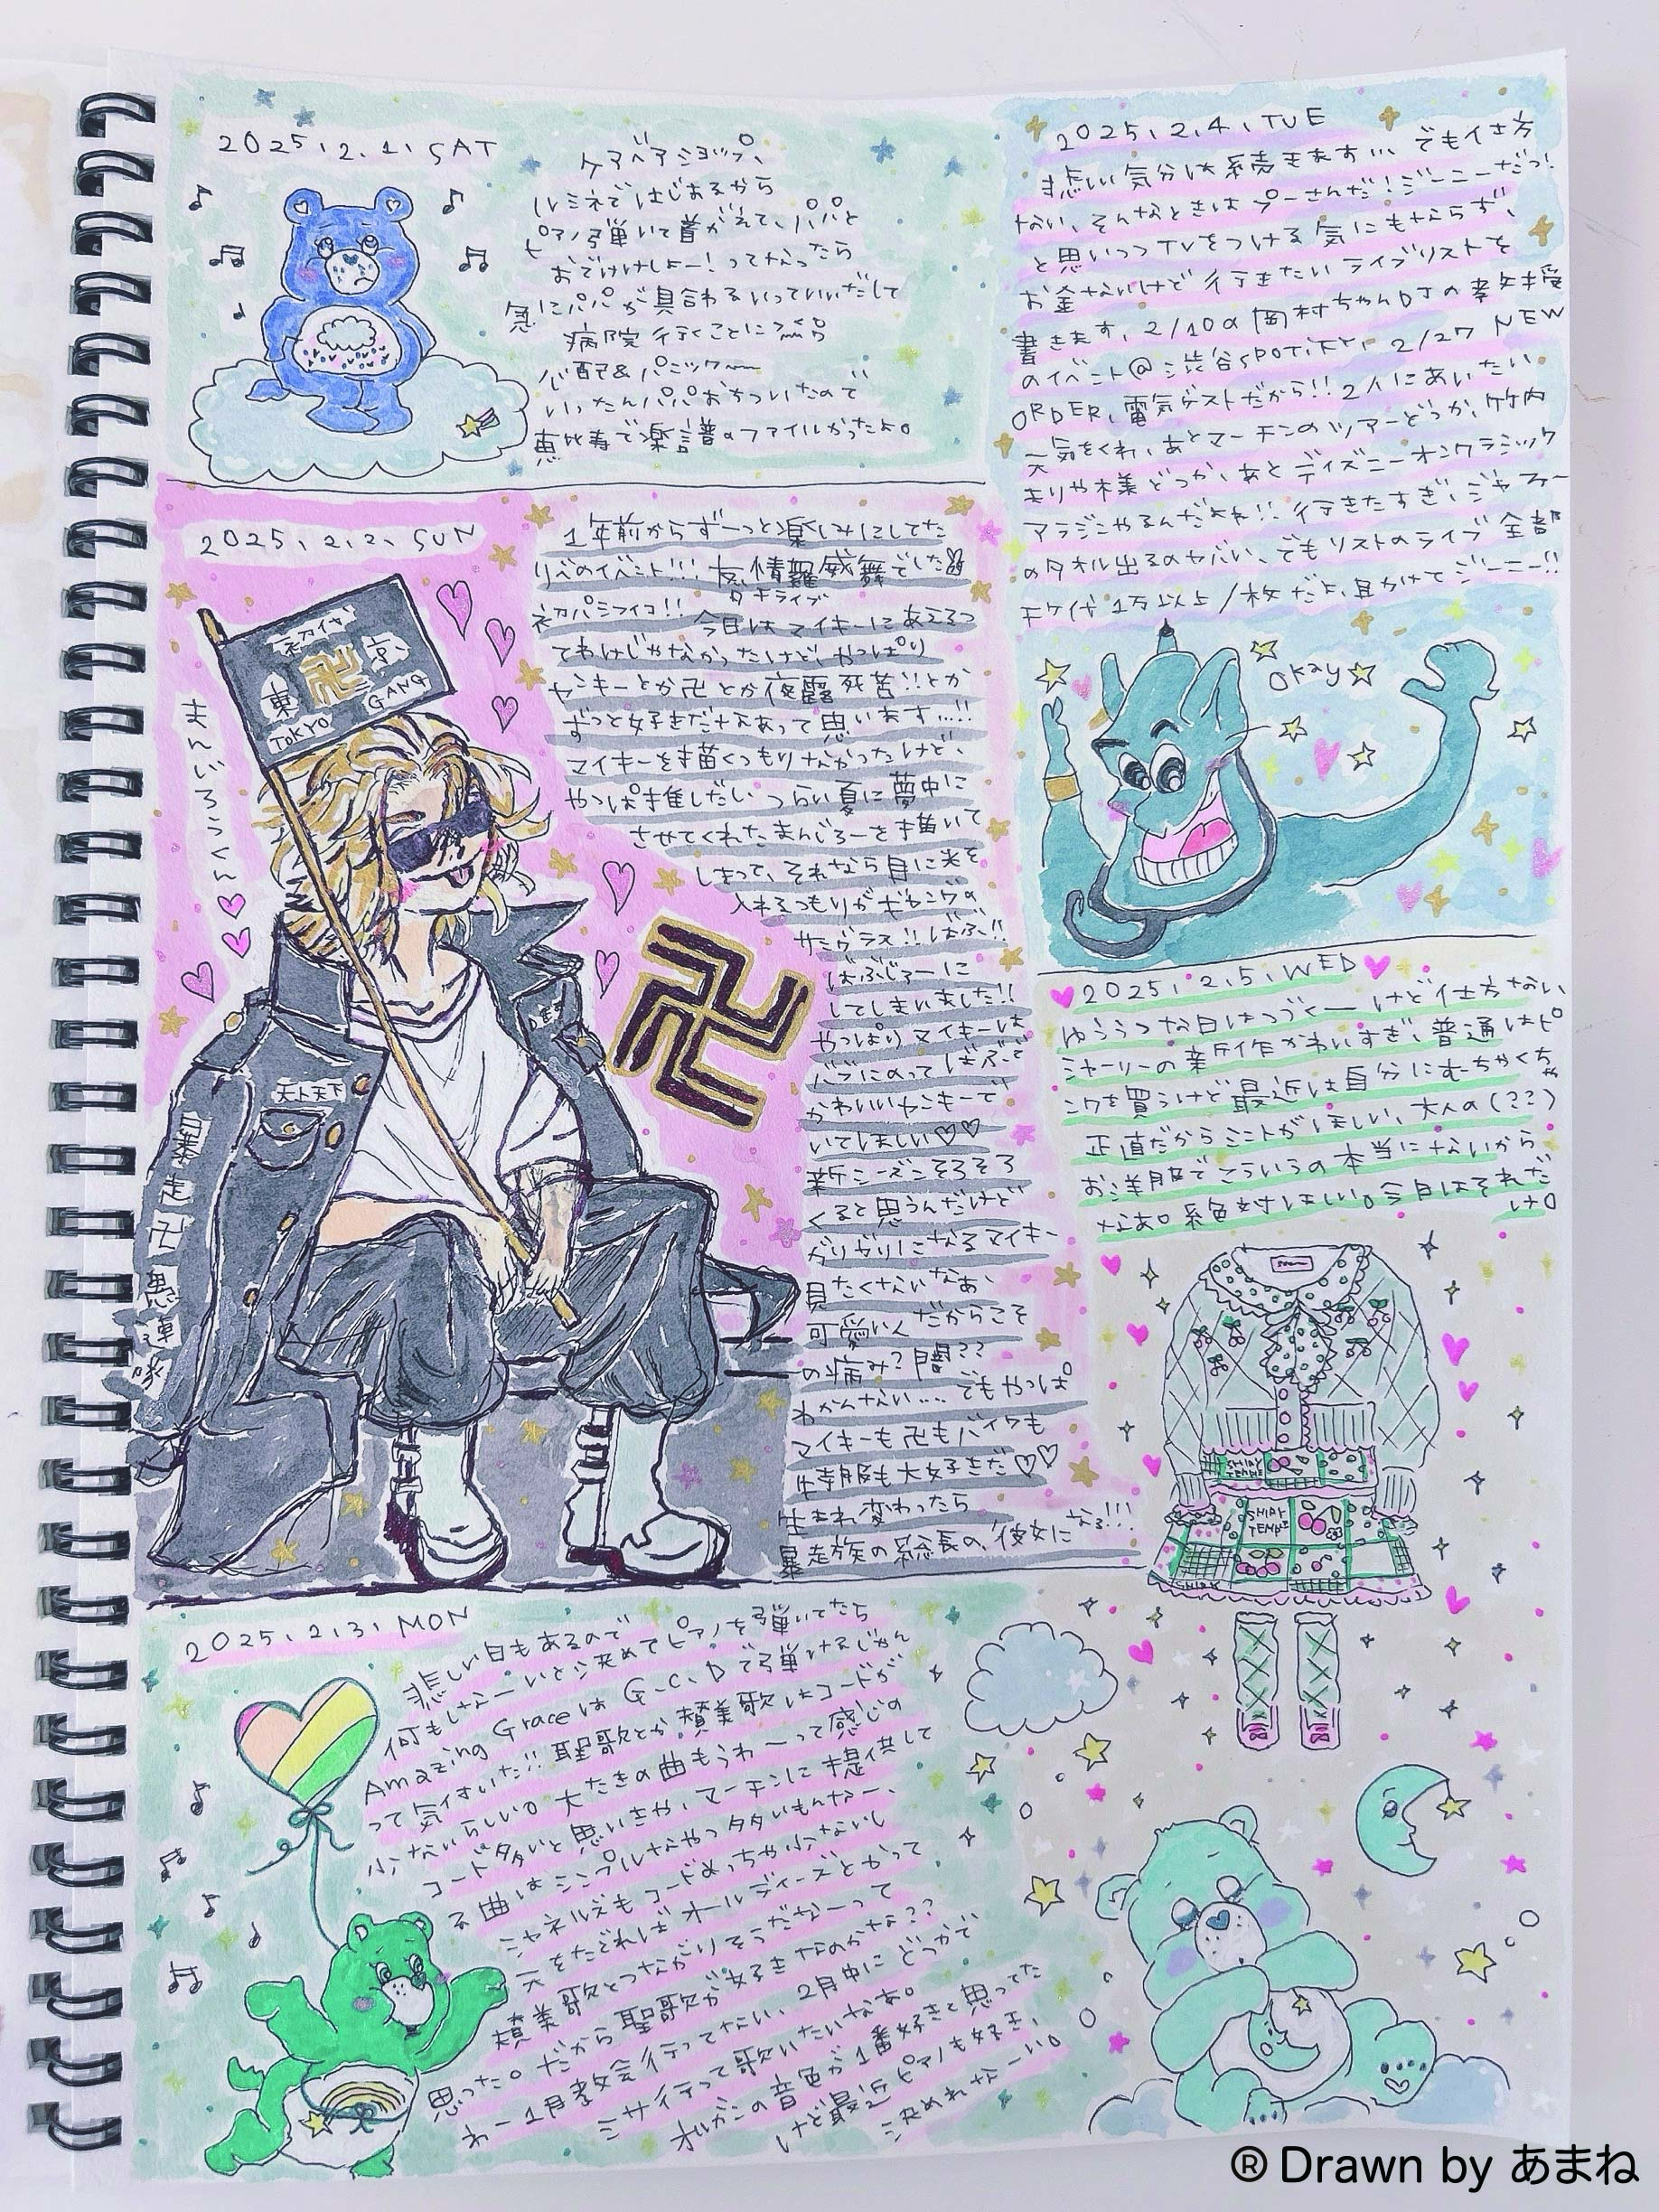 2025.2.1.SAT
ケアベアショップ、
ルミネではじまるから
ピアノ弾いて着がえて、パパと
おでけけしよー!ってなったら
急にパパが具合わるいっていいだして
病院行くことに
心配&パニック〜
いったんパパおちついたので
恵比寿で楽譜のファイルかったよ。
2025.2.2.SUN
1年前からずーっと楽しみにしてた
リベのイベント!!! 友情羅威舞でした
タキライブ
初パシフィコ!! 今日はマイキーにあえるっ
てわけじゃなかったけど、やっぱり
ヤンキーとか卍とか夜露死苦!!とか
ずっと好きだなあって思います...!!
マイキーを描くつもりなかったけど、
やっぱ推しだしつらい夏に夢中に
させてくれたまんじろーを描いて
しまって、それなら目に光を
入れるつもりがギャングの
サングラス!! ばぶ!!
ばぶじろーに
してしまいました!!
やっぱりマイキーは
バブにのってばぶで
かわいいヤンキーで
いてほしい♡♡
新シーズンそろそろ
くると思うんだけど
がりがりになるマイキー
見たくないなあ、
可愛い人だからこそ
の病み?闇??
わかんない... でもやっぱ
マイキーも卍もバイクも
特服も大好きだ♡♡
生まれ変わったら
暴走族の総長の彼女になる!!!
初代
東 卍 京
TOKYO GANG
まんじろうくん
天上天下
暴走卍愚連隊
卍
2025.2.3.MON
悲しい日もあるので
何もしなーいと決めてピアノを弾いてたら
Amazing GraceはG.C.Dで弾けるじゃん
って気付いた!! 聖歌とか賛美歌はコードが
少ないらしい。大たきの曲もうわーって感じの
コード多いと思いきや、マーチンに提供して
る曲はシンプルなやつ多いもんなー、
シャネルズもコードめっちゃ少ないし
元をたどればオールディーズとかって
賛美歌とつながりそうだなーって
思った。だから聖歌が好きなのかな??
わー1月教会行ってない、2月中にどっかで
ミサ行って歌いたいなあ。
オルガンの音色が1番好きと思ってた
けど最近ピアノも好き、
決めれなーい。
2025.2.4.TUE
悲しい気分は続きます... でも仕方
ない、そんなときはプーさんだ!ジーニーだっ!
と思いつつTVをつける気にもならず、
お金ないけど行きたいライブリストを
書きます、2/10の岡村ちゃんDJの孝教授
のイベント@渋谷SPOTiFY、2/27 NEW
ORDER、電気ゲストだから!! 2人にあいたい
元気をくれ、あとマーチンのツアーどっか、竹内
まりや様どっか、あとディズニーオンクラシック
アラジンやるんだよね!! 行きたすぎ、ジャファー
のタオル出るのヤバい、でもリストのライブ全部
チケ代1万以上/枚だよ、助けてジーニー!!
okay
2025.2.5.WED
ゆううつな日はつづくーけど仕方ない
シャーリーの新作かわいすぎ、普通はピ
ンクを買うけど最近は自分にむちゃくちゃ
正直だからミントがほしい、大人の(??)
お洋服でこういうの本当にないから
なあ。絶対ほしい。今日はそれだ
け。
SHIRLEY TEMPLE
SHIRLEY TEMPLE
® Drawn by あまね